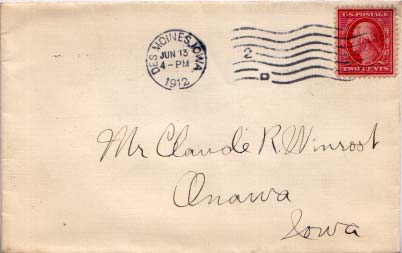 DES MOINES, IOWA
JUN 13
4-PM
1912
2
D
U.S. POSTAGE
TWO CENTS
Mr Claude R. Winrost
Onawa
Iowa